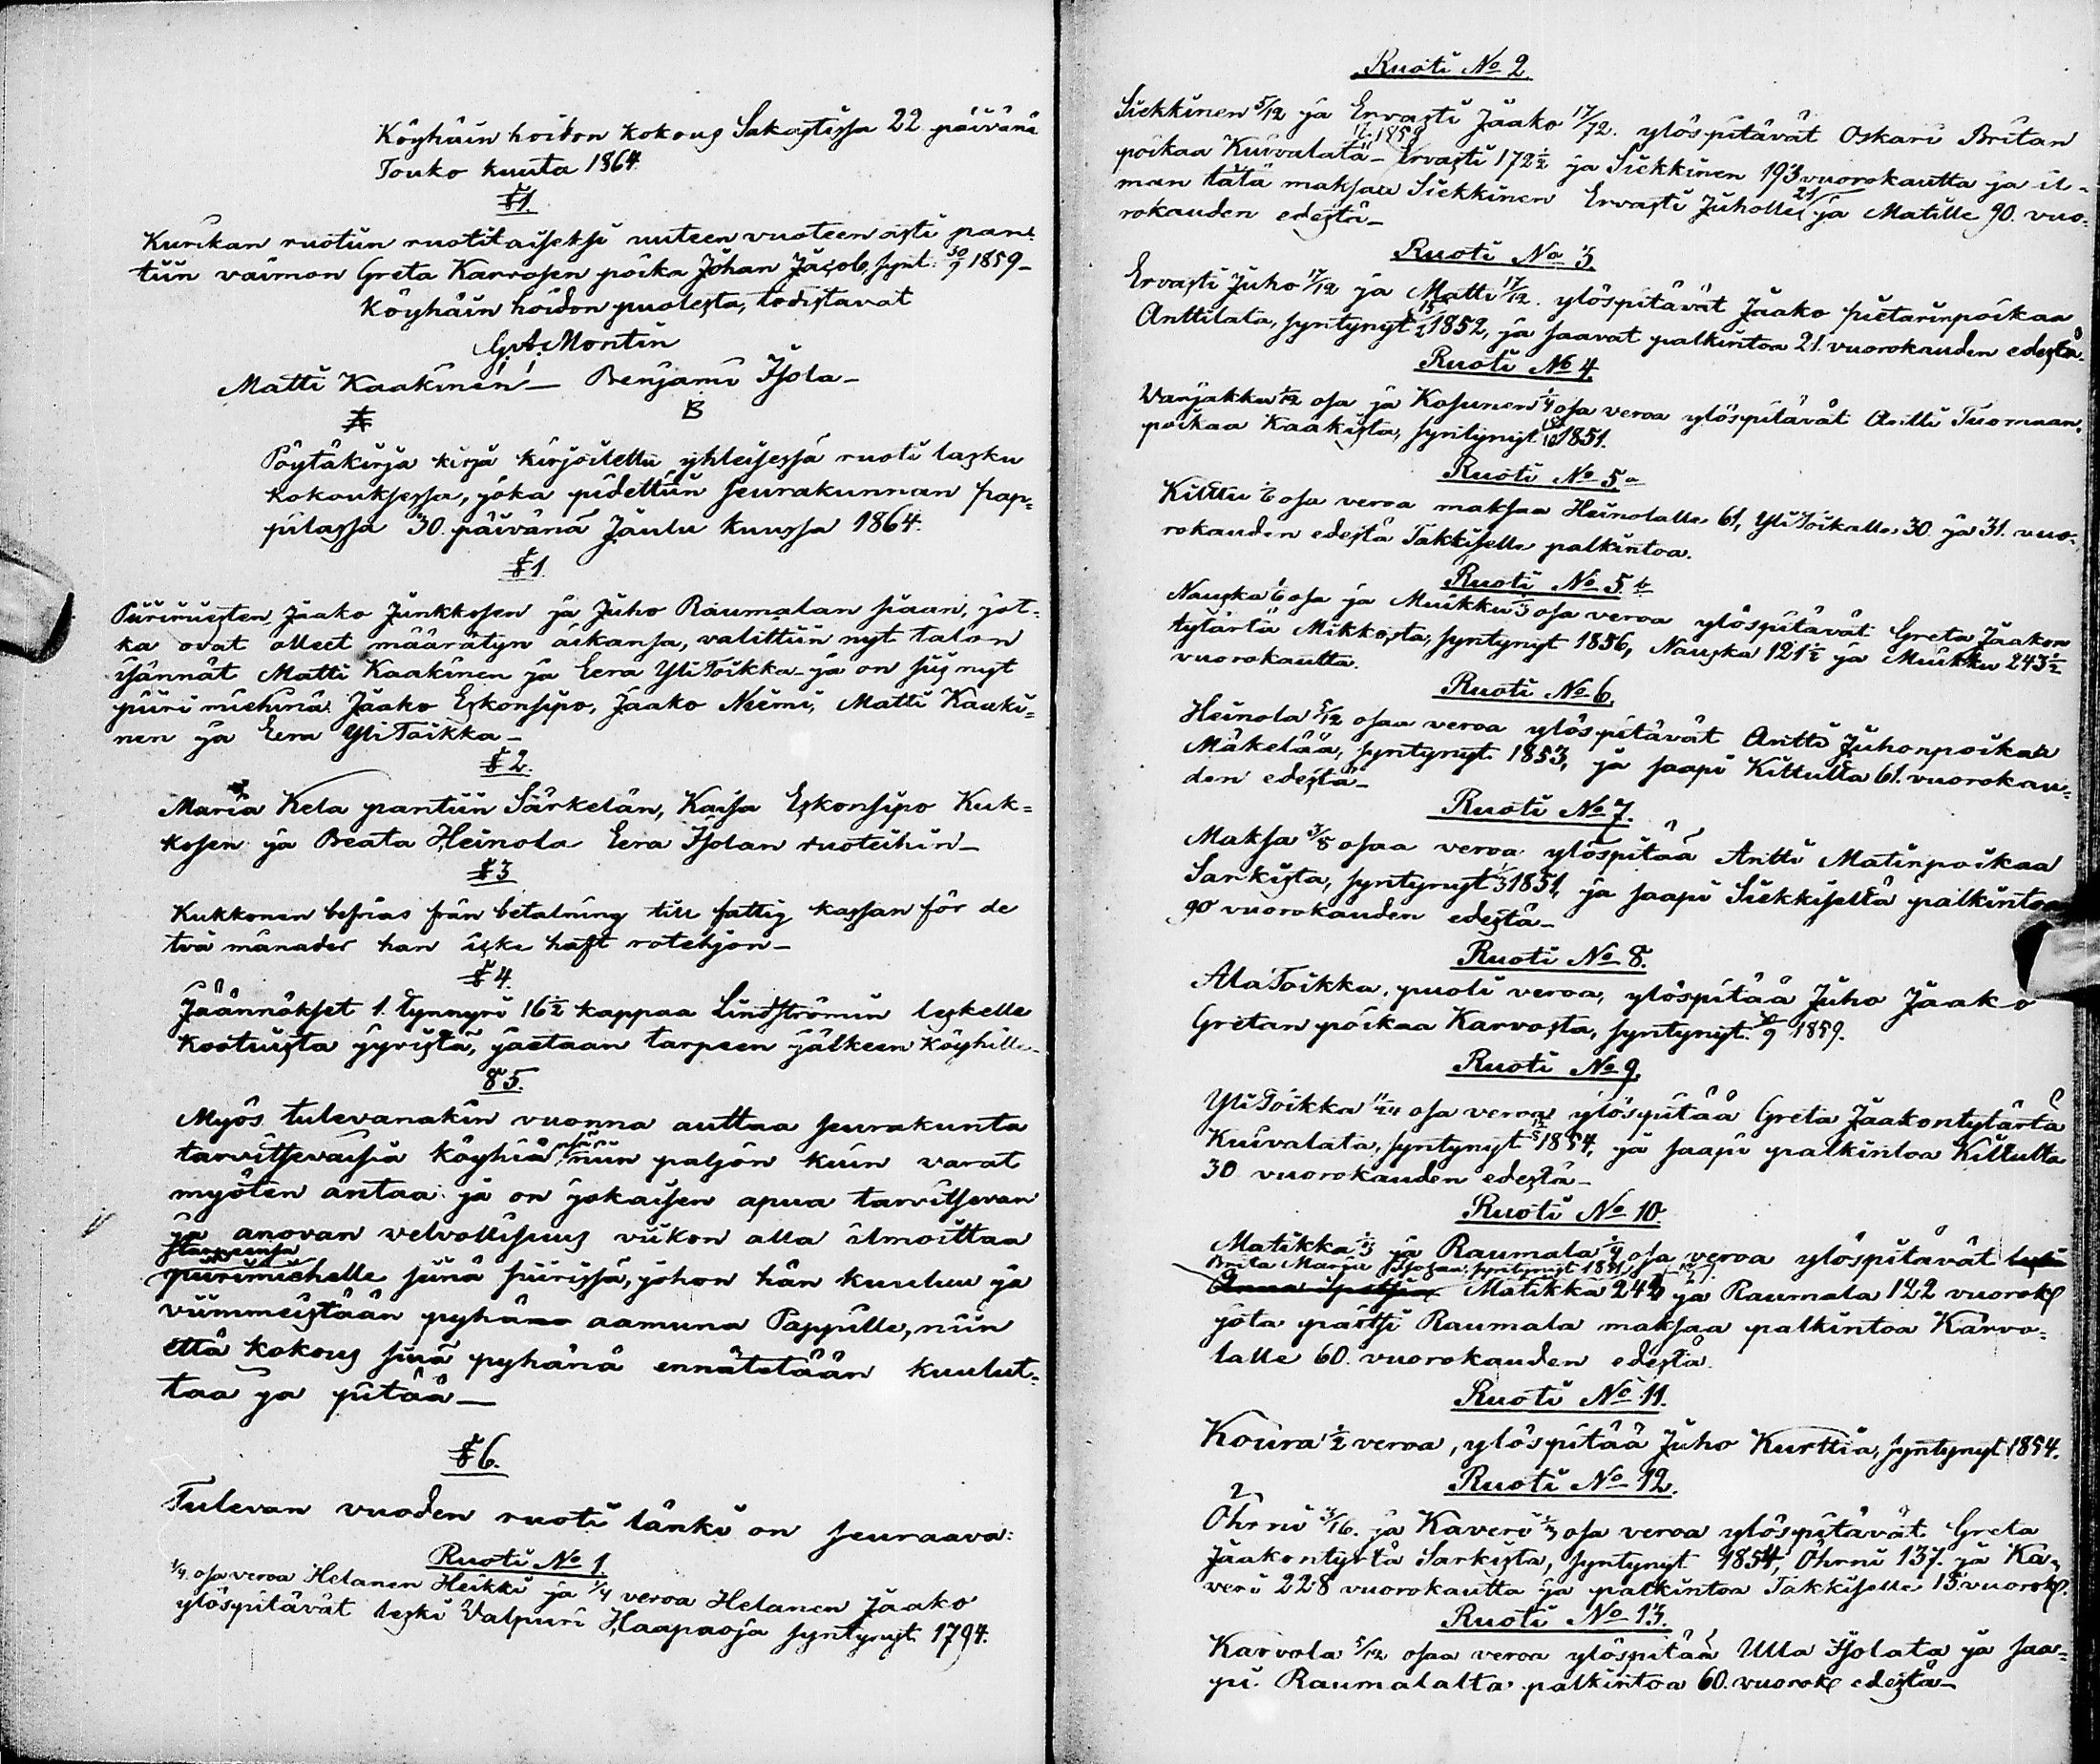 Köyhäin hoidon kokous Sakastissa 22 päivänä
Touko kuuta 1864.
§ 1.
Kurikan ruotiin ruotilaiseksi uuteen vuoteen asti pan-
tiin vaimon Greta Karvosen poika Johan Jacob, synt. 30/9 1859 -
Köyhäin hoidon puolesta, todistavat
G. A. Montin
Matti Kaakinen - Benjami Isola -
B
Pöytäkirja kirja kirjoitettu yhteisessä ruoti lasku
kokouksessa, joka pidettiin seurakunnan pap=
pilassa 30. päivänä Joulu kuussa 1864.
§ 1.
Piirimiesten Jaako Junkkosen ja Juho Raumalan siaan, jot-
ka ovat olleet määrätyn aikansa, valittiin nyt talon
isännät Matti Kaakinen ja Eera YliToikka - ja on siis nyt
piiri miehinä Jaako Eskonsipo, Jaako Niemi, Matti Kaaki=
nen ja Eera YliToikka -
§ 2.
Maria Kela pantiin Särkelän, Kaisa Eskonsipo Kuk=
kosen ja Beata Heinola Eera Isolan ruoteihin -
§ 3
Kukkonen befrias från betalning till fattig kassan för de
två månader han icke haft rotehjon -
§ 4.
Jäännökset 1. tynnyri 16 1/2 kappaa Lindströmin leskelle
kootuista jyvistä, jaetaan tarpeen jälkeen köyhille -
§ 5.
Myös tulevanakin vuonna auttaa seurakunta
tarvitsevaisia köyhiänsä niin paljon kuin varat
myöten antaa: ja on jokaisen apua tarvitsevan
ja anovan velvollisuus viikon alla ilmoittaa
tarpeensa
piirimiehelle siinä piirissä, johon hän kuuluu ja
viimmeistään pyhä aamuna Pappille, niin
että kokous sinä pyhänä ennätetään kuulut=
taa ja pitää -
§ 6.
Tulevan vuoden ruoti länki on seuraava:
Ruoti No 1.
1/4 osa veroa Helanen Heikki ja 1/4 veroa Helanen Jaako
ylöspitävät leski Valpuri Haapaoja syntynyt 1794.
Ruoti No 2.
Siekkinen 5/12 ja Ervasti Jaako 17/72. ylöspitävät Oskari Britan
poikaa Kuivalata - 1859 Ervasti 172 1/2 ja Siekkinen 193 vuorokautta ja il=
man tätä maksaa Siekkinen Ervasti Juholle 21 ja Matille 90. vuo=
rokauden edestä -
Ruoti No 3.
Ervasti Juho 17/12 ja Matti 17/12. ylöspitävät Jaako Pietarinpoikaa
Anttilata, syntynyt 1852, ja saavat palkintoa 21. vuorokauden edestä -
Ruoti No 4.
Varjakka 1/12 osa ja Kosunen 1/4 osa veroa ylöspitävät Antti Tuomaan
poikaa Kaakista, syntynyt 1851.
Ruoti No 5 a
Kittu 1/6 osa veroa maksaa Heinolalle 61, YliToikalle 30 ja 31. vuo=
rokauden edestä Takkiselle palkintoa.
Ruoti No 5 b
Nauska 1/6 osa ja Muikku 1/3 osa veroa ylöspitävät Greta Jaakon
tytärtä Mikkosta, syntynyt 1856, Nauska 121 1/2 ja Muikku 243 1/2
vuorokautta.
Ruoti No 6.
Heinola 5/12 osaa veroa ylöspitävät Antti Juhonpoikaa
Mäkelää, syntynyt 1853, ja saapi Kittulta 61. vuorokau=
den edestä -
Ruoti No 7.
Maksa 3/8 osaa veroa ylöspitää Antti Matinpoikaa
Sarkista, syntynyt 1851, ja saapi Siekkiseltä palkintoa
90 vuorokauden edestä -
Ruoti No 8.
AlaToikka, puoli veroa, ylöspitää Juho Jaako
Gretan poikaa Karvosta, syntynyt 30/9 1859.
Ruoti No 9.
YliToikka 11/24 osa veroa ylöspitää Greta Jaakontytärtä
Kuivalata, syntynyt 1854, ja saapi palkintoa Kittulta
30 vuorokauden edestä -
Ruoti No 10.
Matikka 1/3 ja Raumala 1/4 osa veroa ylöspitävät
Brita Maria Isolaa, syntynyt 1851
Matikka 243 ja Raumala 122 vuorok
jota paitsi Raumala maksaa palkintoa Karvo=
lalle 60. vuorokauden edestä.
Ruoti No 11.
Koura 1/2 veroa, ylöspitää Juho Kurttia, syntynyt 1854.
Ruoti No 12.
Öhrni 3/16. ja Kaveri 1/3 osa veroa ylöspitävät Greta
Jaakontyttä Sarkista, syntynyt 1854, Öhrni 137. ja Ka=
veri 228 vuorokautta ja palkintoa Takkiselle 15 vuorok.
Ruoti No 13.
Karvola 5/12 osaa veroa ylöspitää Ulla Isolata ja saa=
pi Raumalalta palkintoa 60. vuorok edestä -